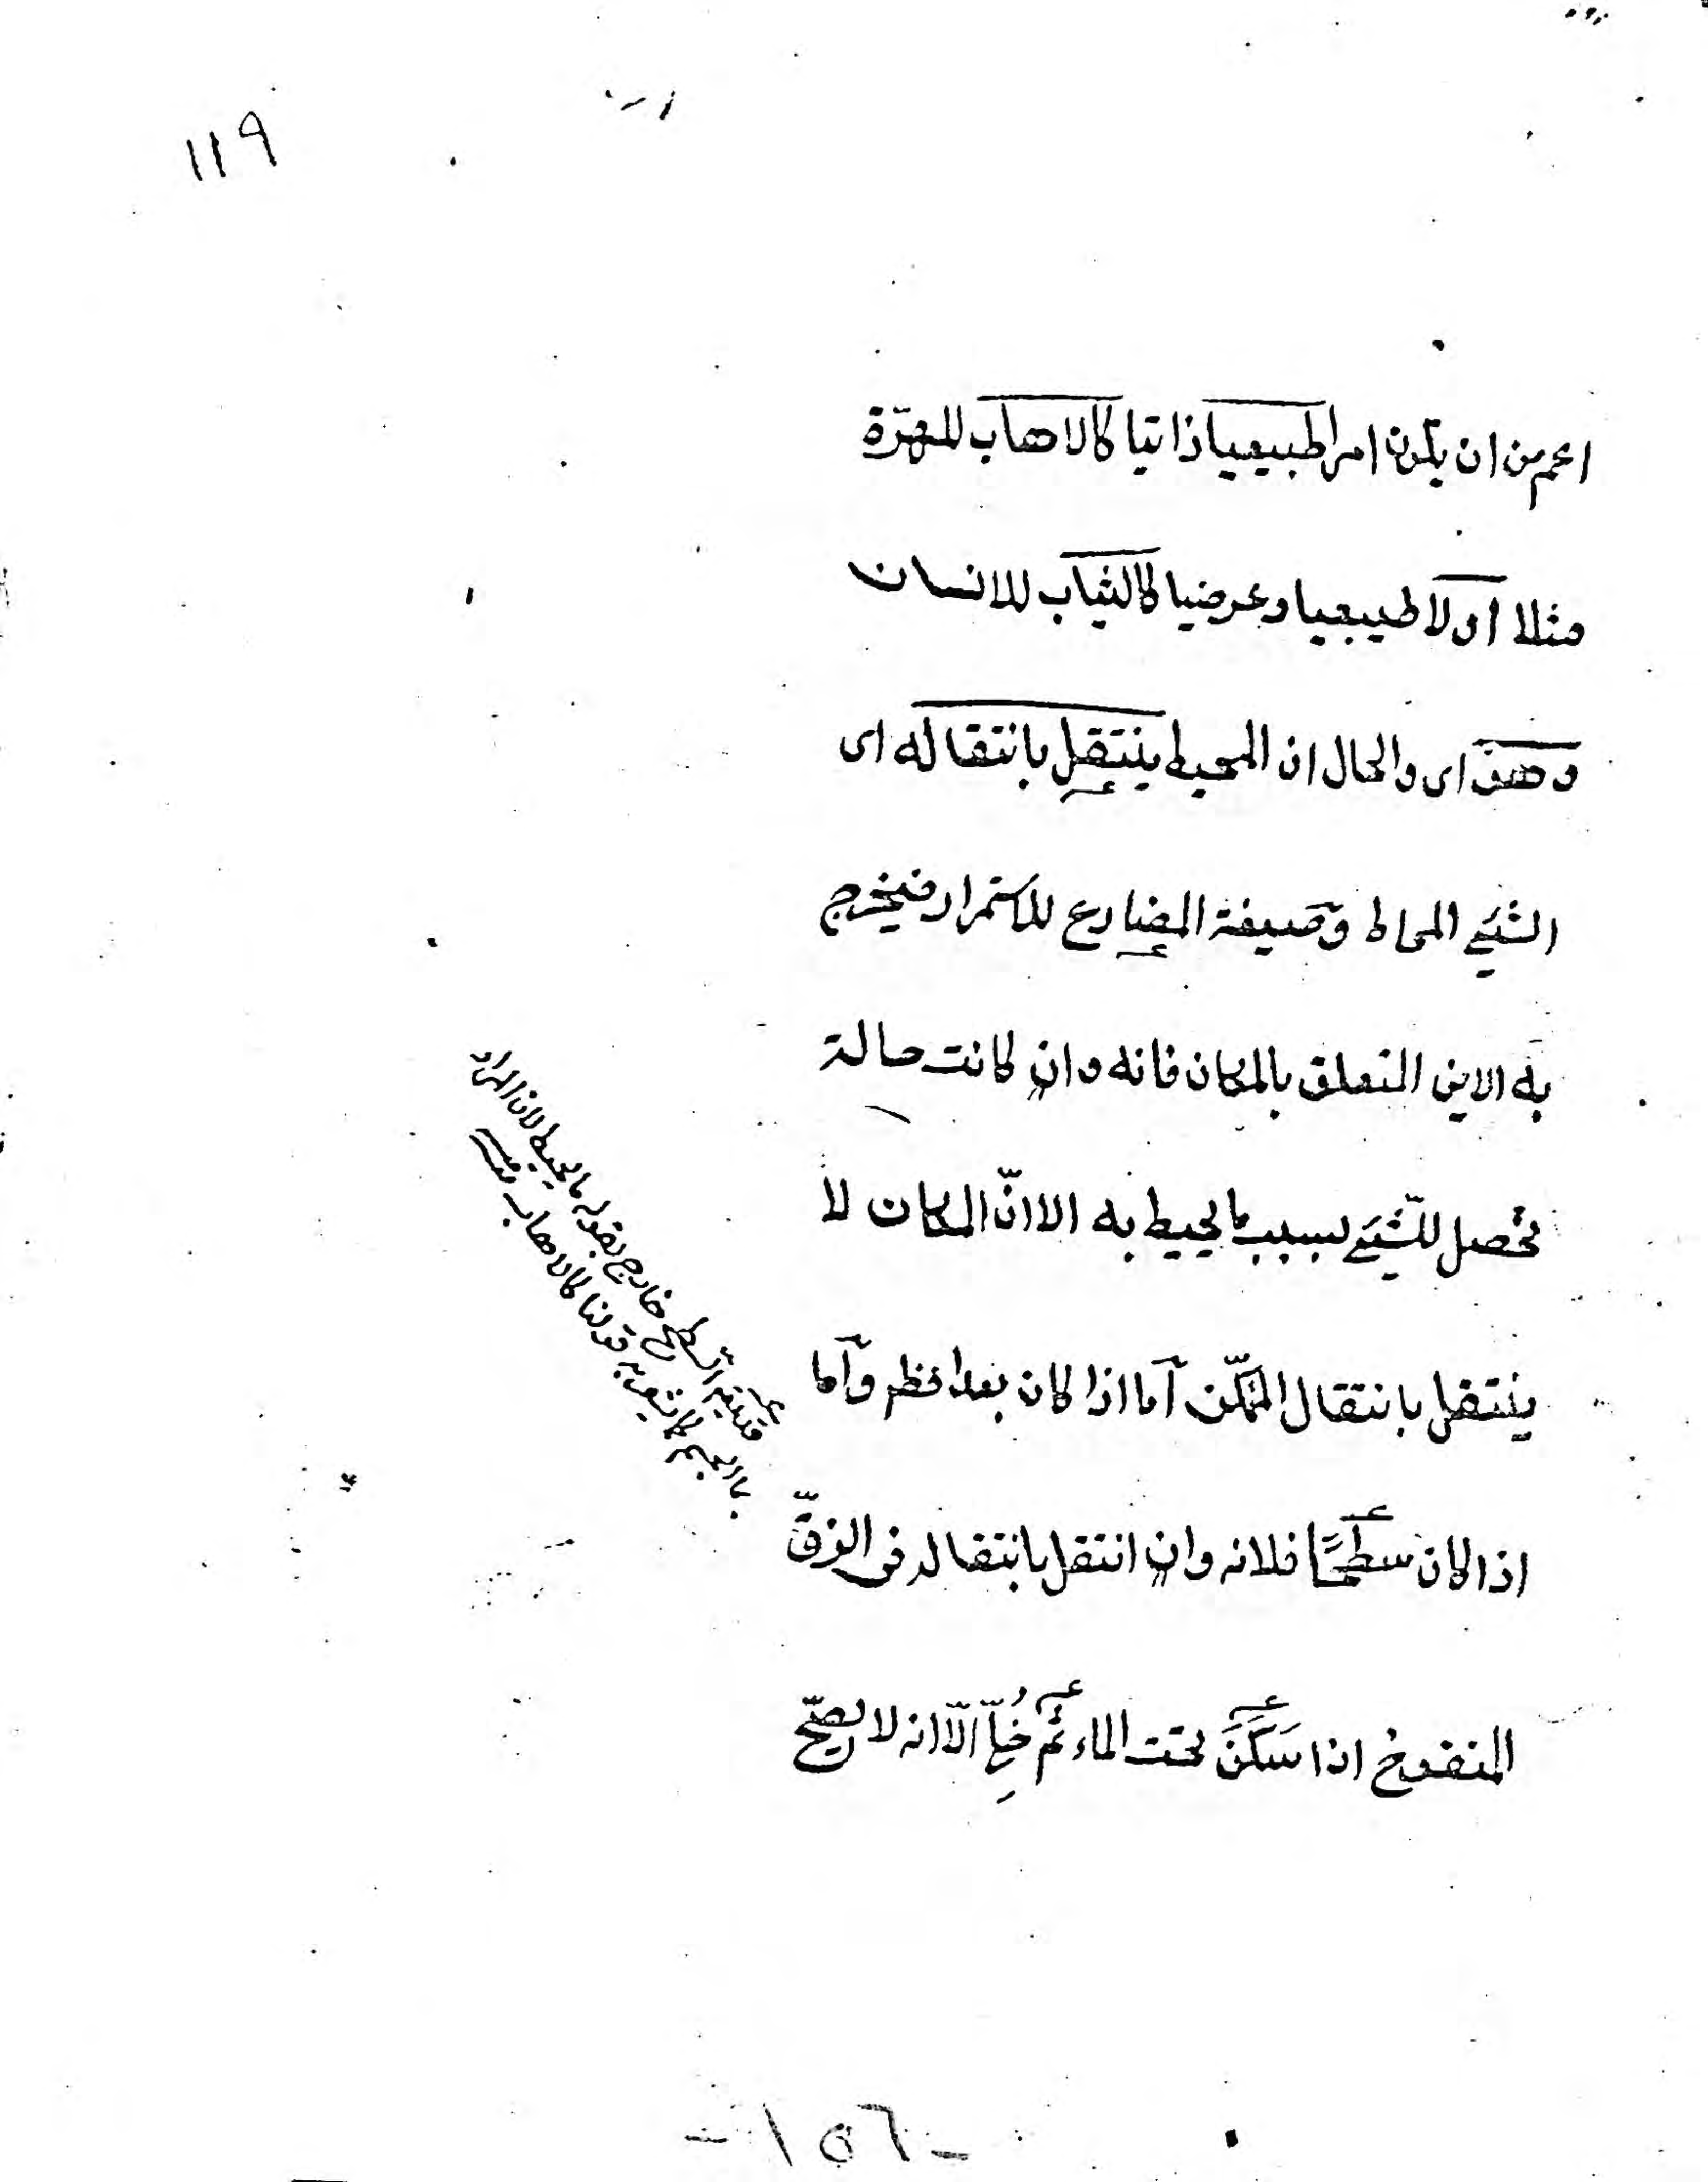 ١١٩
اعم من ان يكون امرا طبيعيا ذاتيا كالاهاب للهرّة
مثلا او لا طبيعيا وعرضيا كالثياب للانسان
وهو اى والحال ان المحيط ينتقل بانتقاله اى
الشيئ المحاط وصيغة المضارع للاستمرار فيخرج
به الاين المتعلق بالمكان فانه وان كانت حالة
تحصل للشّيئ بسبب ما يحيط به الا انّ المكان لا
ينتقل بانتقال المتمكّن اما اذا كان بعدا فظهر واما
اذا كان سطحًا فلانه وان انتقل بانتقاله فى الزقّ
المنفوخ اذا سَكَنَ تحت الماء ثم خُلِّ الّا انه لا يصحّ
السطح خارج بقوله ما يحيط لان المراد
كما يشعر به قولنا كالاهاب
-١٥٦-